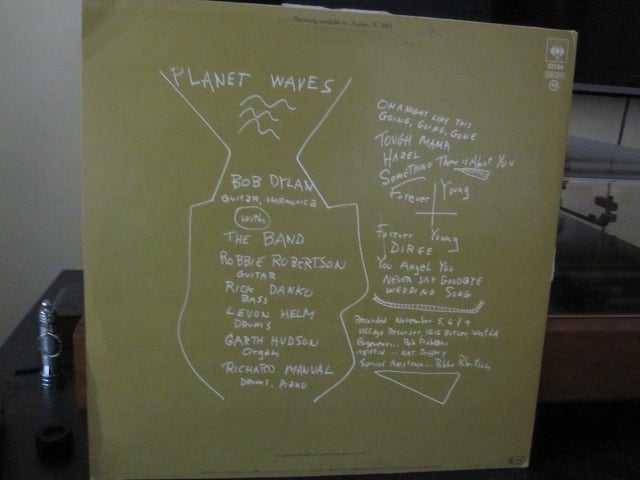 PLANET WAVES
BOB DYLAN
GUITAR, HARMONICA
with
THE BAND
ROBBIE ROBERTSON
GUITAR
RICK DANKO
BASS
LEVON HELM
DRUMS
GARTH HUDSON
Organ
RICHARD MANUAL
DRUMS, PIANO
ON A NIGHT LIKE THIS
GOING, GOING, GONE
TOUGH MAMA
HAZEL
SOMETHING There is About You
Forever Young
Forever Young
DIRGE
You ANGEL You
NEVER SAY GOODBYE
WEDDING SONG
Recorded November 5, 6, 9
Village Recorder
Engineer... Rob Fraboni
NAT JEFFREY
Special Assistance... Robbie Robertson
CBS